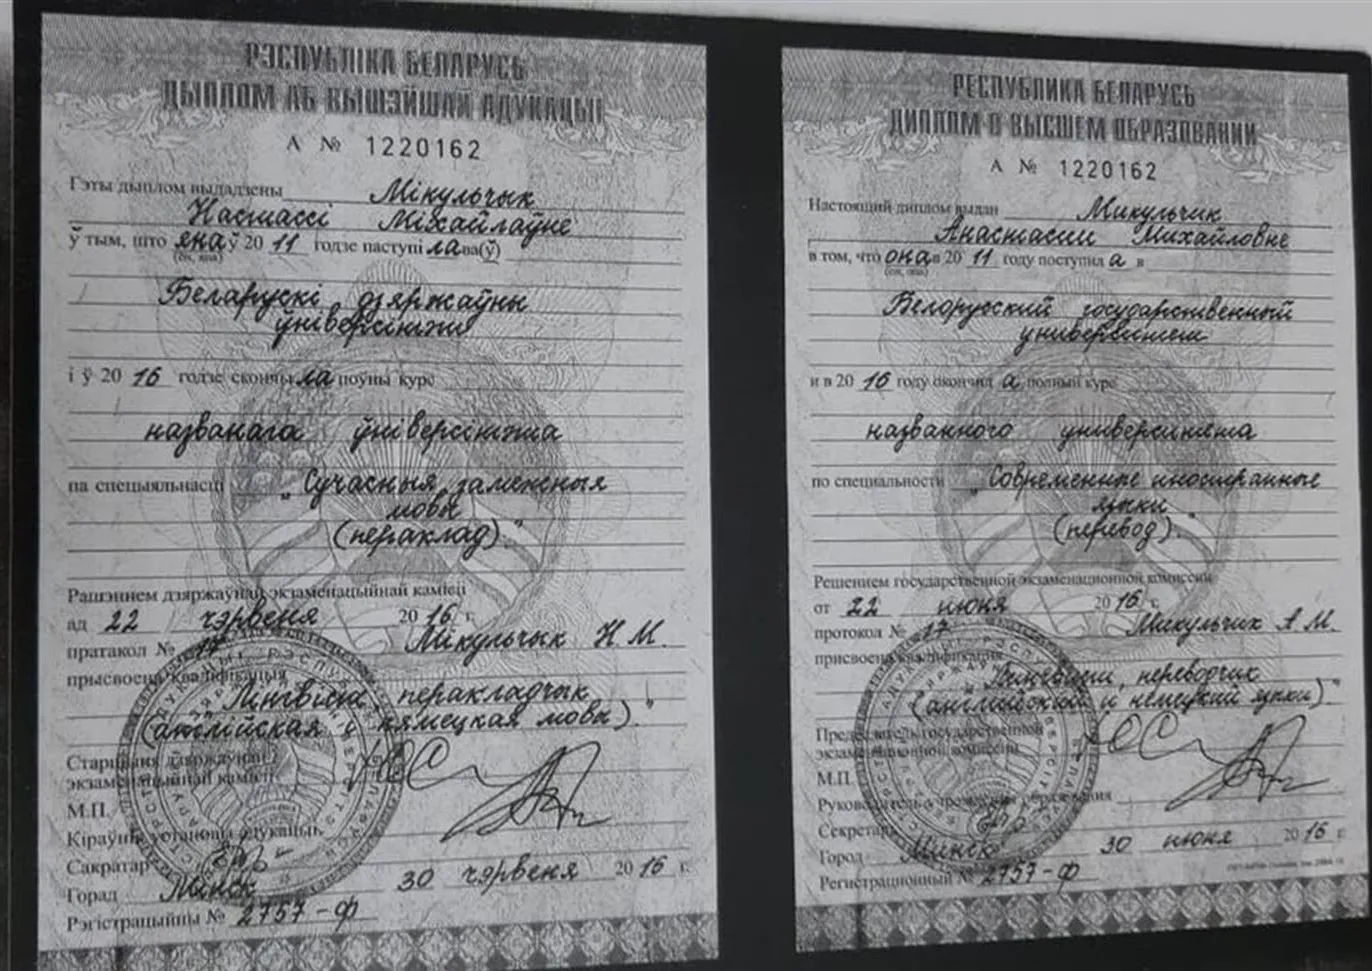 РЭСПУБЛІКА БЕЛАРУСЬ
ДЫПЛОМ АБ ВЫШЭЙШАЙ АДУКАЦЫІ
А № 1220162
Гэты дыплом выдадзены Мікульчык
Настассі Міхайлаўне
ў тым, што яна ў 20 11 годзе паступі ла ва(ў)
(ён, яна)
Беларускі дзяржаўны
ўніверсітэт
і ў 20 16 годзе скончы ла поўны курс
названага ўніверсітэта
па спецыяльнасці "Сучасныя замежныя
мовы
(пераклад)."
Рашэннем дзяржаўнай экзаменацыйнай камісіі
ад 22 чэрвеня 20 16 г.
пратакол № 17 Мікульчык Н. М.
прысвоена кваліфікацыя
"Лінгвіст, перакладчык
(англійская і нямецкая мовы)."
Старшыня дзяржаўнай
экзаменацыйнай камісіі
М.П.
Кіраўнік установы адукацыі
Сакратар
Горад Мінск 30 чэрвеня 20 16 г.
Рэгістрацыйны № 2757-ф
РЕСПУБЛИКА БЕЛАРУСЬ
ДИПЛОМ О ВЫСШЕМ ОБРАЗОВАНИИ
А № 1220162
Настоящий диплом выдан Микульчик
Анастасии Михайловне
в том, что она в 20 11 году поступил а в
(он, она)
Белорусский государственный
университет
и в 20 16 году окончил а полный курс
названного университета
по специальности "Современные иностранные
языки
(перевод)."
Решением государственной экзаменационной комиссии
от 22 июня 20 16 г.
протокол № 17 Микульчик А. М.
присвоена квалификация
"Лингвист, переводчик
(английский и немецкий языки)."
Председатель государственной
экзаменационной комиссии
М.П.
Руководитель учреждения образования
Секретарь
Город Минск 30 июня 20 16 г.
Регистрационный № 2757-ф